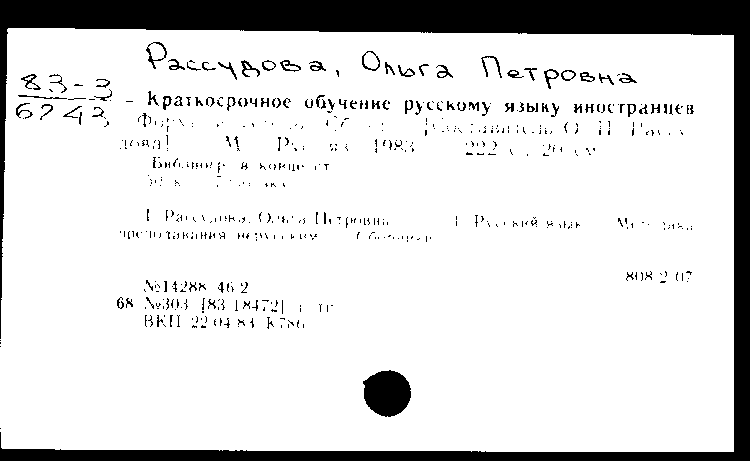 Рассудова, Ольга Петровна
83-3
6743
- Краткосрочное обучение русскому языку иностранцев
[Составитель О. П. Рассу-
дова] М Рус яз 1983 222 с 20 см
Библиогр в конце ст
1 Рассудова, Ольга Петровна 1 Русский язык Методика
преподавания нерусским Сборники
808 2 07
№14288 46 2
68 №303 [83-18472] п тг
ВКП 22 04 83 К786